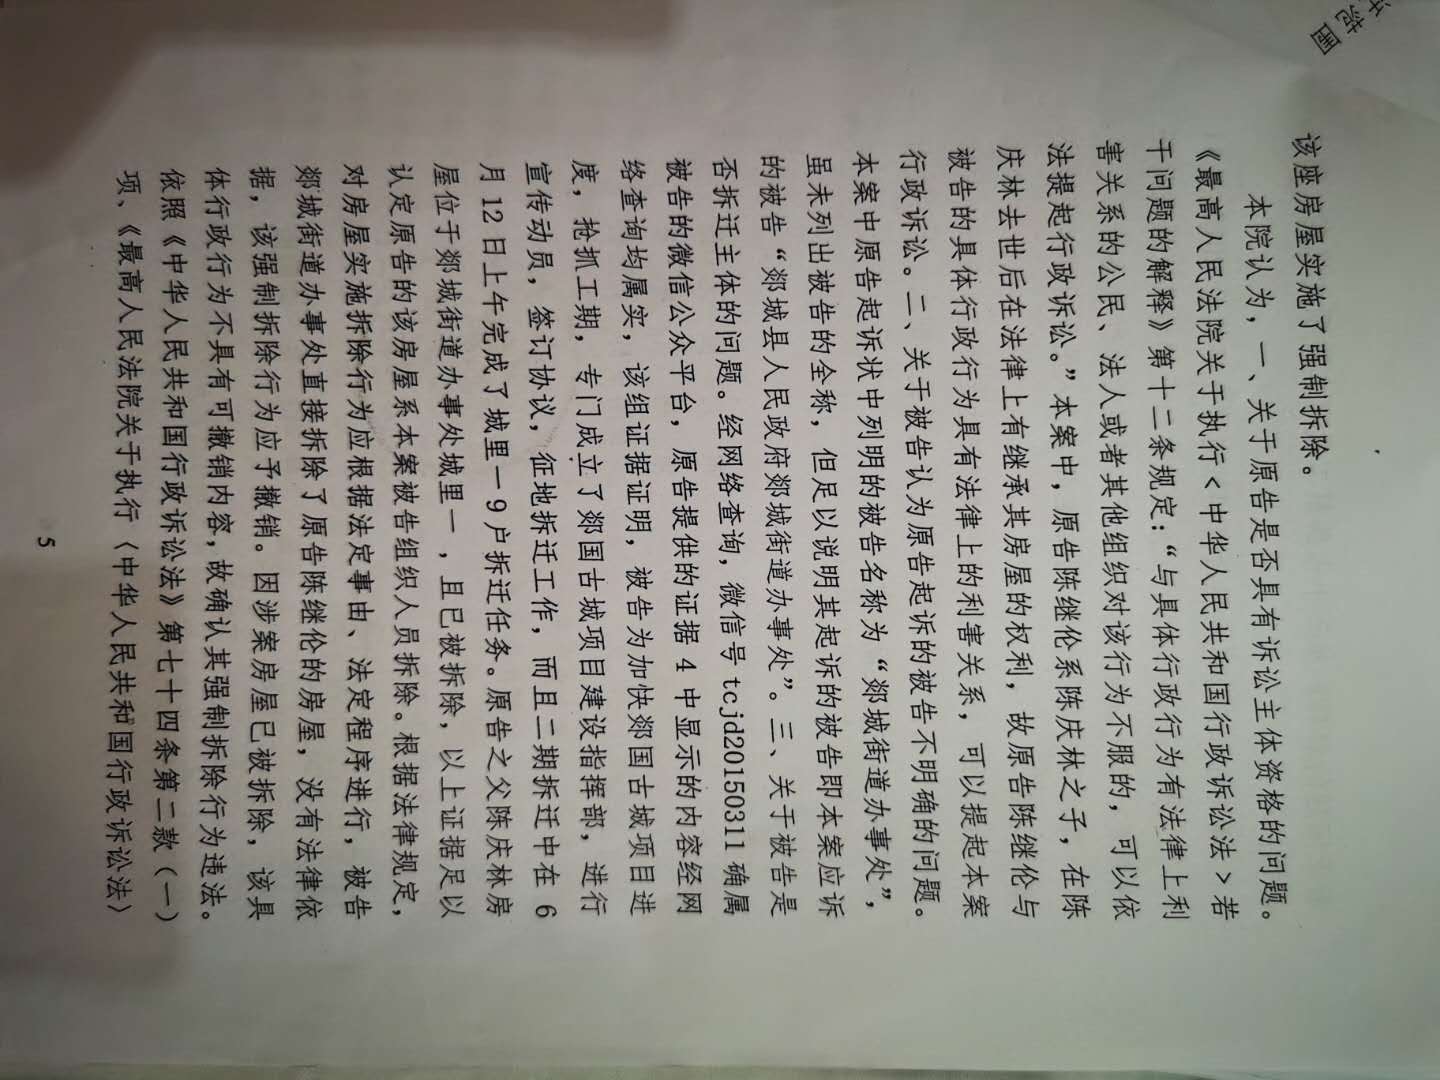 该座房屋实施了强制拆除。
本院认为，一、关于原告是否具有诉讼主体资格的问题。
《最高人民法院关于执行<中华人民共和国行政诉讼法>若
干问题的解释》第十二条规定：“与具体行政行为有法律上利
害关系的公民、法人或者其他组织对该行为不服的，可以依
法提起行政诉讼。”本案中，原告陈继伦系陈庆林之子，在陈
庆林去世后在法律上有继承其房屋的权利，故原告陈继伦与
被告的具体行政行为具有法律上的利害关系，可以提起本案
行政诉讼。二、关于被告认为原告起诉的被告不明确的问题。
本案中原告起诉状中列明的被告名称为“郯城街道办事处”，
虽未列出被告的全称，但足以说明其起诉的被告即本案应诉
的被告“郯城县人民政府郯城街道办事处”。三、关于被告是
否拆迁主体的问题。经网络查询，微信号tcjd20150311确属
被告的微信公众平台，原告提供的证据4中显示的内容经网
络查询均属实，该组证据证明，被告为加快郯国古城项目进
度，抢抓工期，专门成立了郯国古城项目建设指挥部，进行
宣传动员，签订协议，征地拆迁工作，而且二期拆迁中在6
月12日上午完成了城里一9户拆迁任务。原告之父陈庆林房
屋位于郯城街道办事处城里一，且已被拆除，以上证据足以
认定原告的该房屋系本案被告组织人员拆除。根据法律规定，
对房屋实施拆除行为应根据法定事由、法定程序进行，被告
郯城街道办事处直接拆除了原告陈继伦的房屋，没有法律依
据，该强制拆除行为应予撤销。因涉案房屋已被拆除，该具
体行政行为不具有可撤销内容，故确认其强制拆除行为违法。
依照《中华人民共和国行政诉讼法》第七十四条第二款（一）
项、《最高人民法院关于执行〈中华人民共和国行政诉讼法〉
5